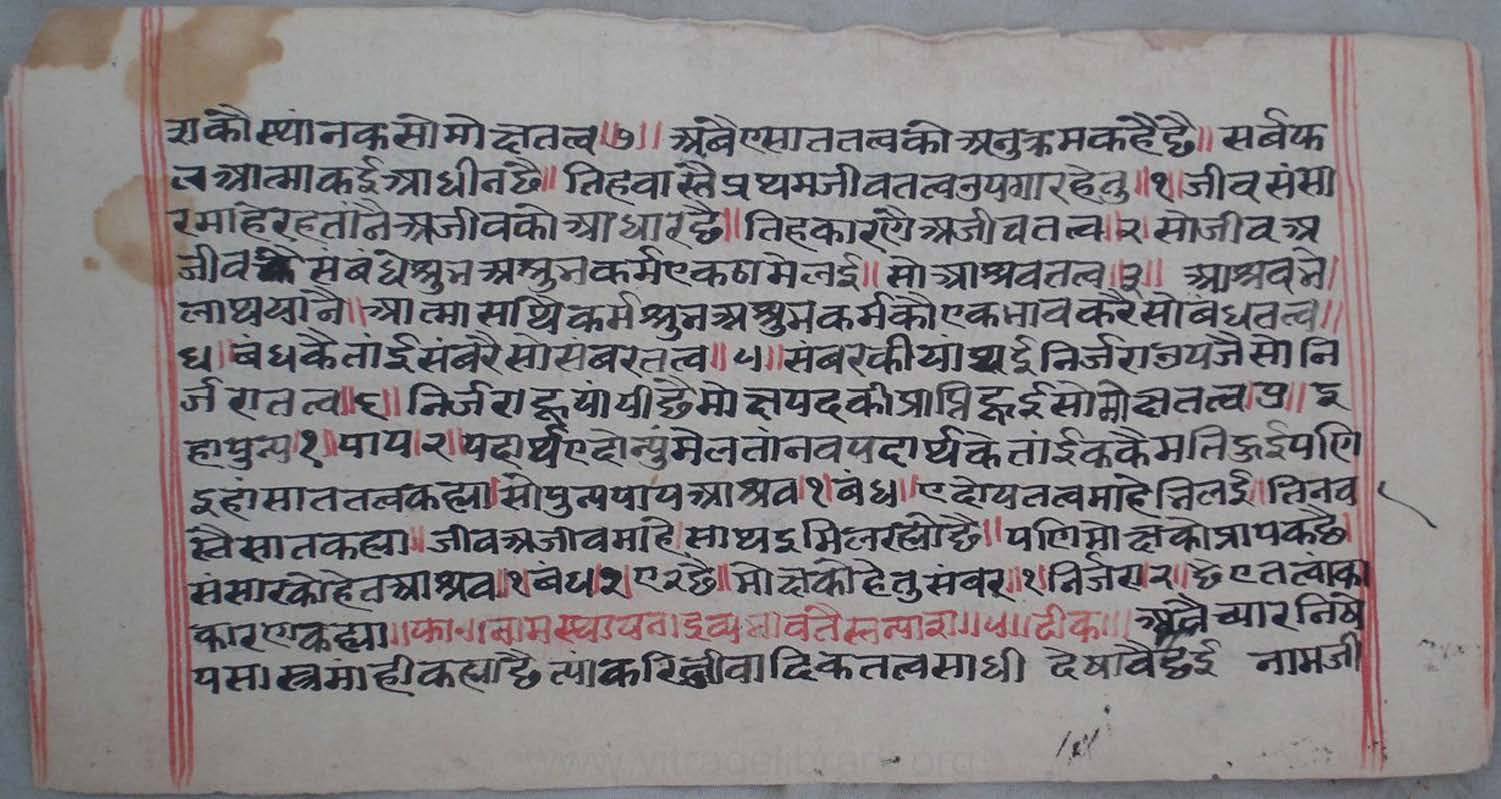 राकौ स्थांनक सो मोक्षतत्व॥७॥ अबै ए सात तत्वको अनुक्रम कहै छै॥ सर्बफ
ल आत्माकई आधीन छै॥ तिहवास्तै प्रथम जीवतत्व उपगारहेतु॥१॥ जीव संसा
रमांहे रहतांनै अजीवको आधार छै॥ तिह कारणै अजीवतत्व॥२॥ सो जीव अ
जीव संबंधे शुभ अशुभ कर्म एकठा मेलई॥ सो आश्रवतत्व॥३॥ आश्रवने
लाध थयांनै॥ आत्मा साथि कर्म शुभ अशुभ कर्मकौ एक भाव करै सो बंधतत्व॥
४॥ बंधकै तांई संबरै सो संबरतत्व॥५॥ संबर कीयां थई निर्जरा उपजै सो नि
र्जरातत्व॥६॥ निर्जरा हूयां पीछै मोक्षपदकी प्राप्ति हूई सो मोक्षतत्व॥७॥ इ
हा पुन्य१॥ पाप२॥ पदार्थ ए दोन्युं मेलतां नव पदार्थ के तांई पणि
इहां सात तत्व कह्या॥ सो पुन्य पाप आश्रव॥१॥ बंध॥ ए दोय तत्वमांहे मिलई॥ तिनव
स्तै सात कह्या॥ जीव अजीवमांहि साथइ मिल रह्यो छै॥ पणि मोक्षको प्रापक छै॥
संसारको हेत आश्रव॥१॥ बंध॥२॥ ए छै॥ मोक्षको हेतु संबर॥१॥ निर्जरा२॥ छै ए तत्वांका
कारण कह्या॥ नामस्थापनाद्रव्यभावतैस्तन्यास॥५॥ टीका॥ अबै च्यार निषे
प सास्त्रमांही कह्या छै त्यांकरि जीवादिक तत्व साधी देषावै छई नामजी
www.vitragelibrary.org